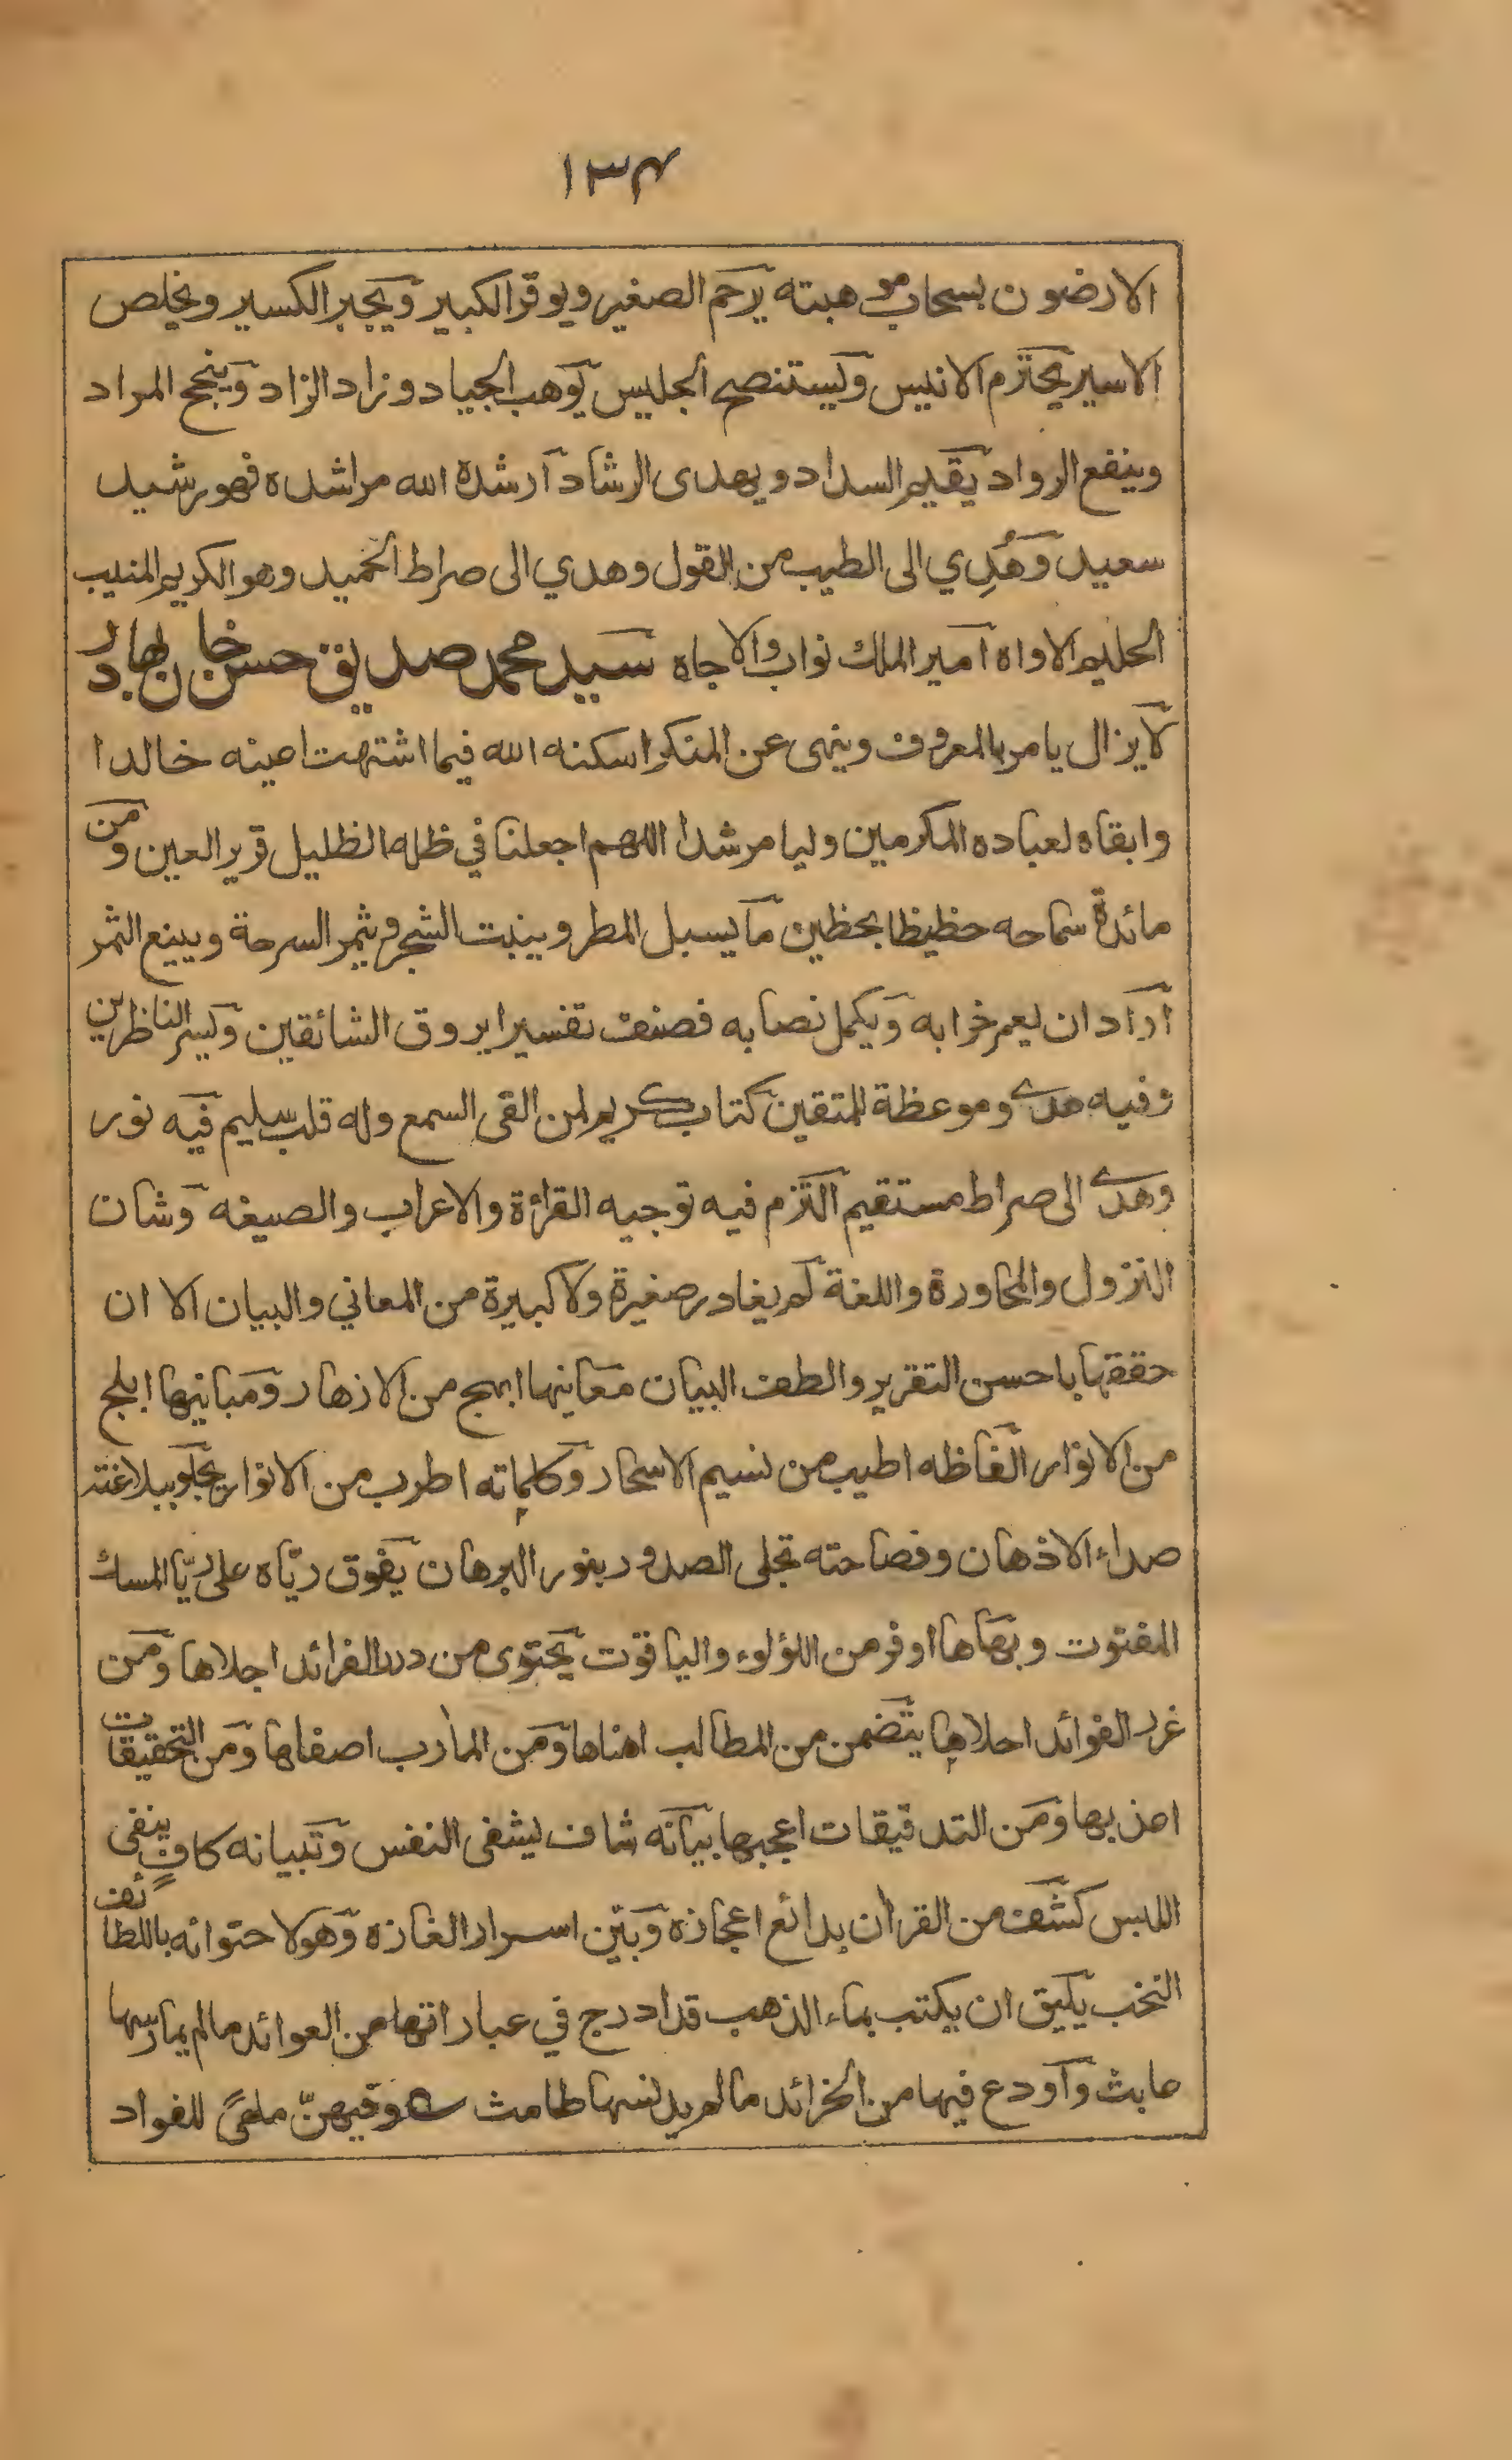 ١٣٤
الارضون بسحاب موهبته يرحم الصغير ويوقر الكبير ويجبر الكسير ويخلص
الاسير يحترم الانيس ويستنصح الجليس يوهب الجياد وزاد الزاد وينجح المراد
وينفع الرواد يقيم السداد ويهدى الرشاد آرشده الله مراشده فهو رشيد
سعيد وَهُدِي الى الطيب من القول وهدي الى صراط الحميد وهو الكريم المنيب
الحليم الاواه امير الملك نواب والا جاه سيد محمد صديق حسن خان بهادر
لا يزال يامر بالمعروف وينهى عن المنكر اسكنه الله فيما اشتهت عينه خالدا
وابقاه لعباده المكرمين وليا مرشدا اللهم اجعلنا في ظله الظليل قرير العين ومن
مائدة سماحه حظيظا بحظين ما يسبل المطر وينبت الشجر ويثمر السرحة ويينع الثمر
آراد ان يعمر خرابه ويكمل نصابه فصنف تفسيرا يروق الشائقين ويسر الناظرين
وفيه هدى وموعظة للمتقين كتاب كريم لمن القى السمع وله قلب سليم فيه نور
وهدى الى صراط مستقيم التزم فيه توجيه القرائة والاعراب والصيغه وشان
النزول والمحاورة واللغة لم يغادر صغيرة ولا كبيرة من المعاني والبيان الا ان
حققها باحسن التقرير والطف البيان معانيها ابهج من الازهار ومبانيها ابلج
من الانوار الفاظه اطيب من نسيم الاسحار وكلماته اطرب من الانوار يجلو ببلاغته
صداء الاذهان وفصاحته تجلى الصدور بنور البرهان يفوق ريّاه على ريّا المسك
المفتوت وبهاها اوفر من اللؤلوء والياقوت يحتوى من درر الفرائد اجلاها ومن
غرر الفوائد احلاها يتضمن من المطالب اهناها ومن المآرب اصفاها ومن التحقيقات
اعذبها ومن التدقيقات اعجبها بيانه شاف يشفى النفس وتبيانه كافٍ ينفى
اللبس كشف من القرآن بدائع اعجازه وبيّن اسرار الغازه وهو لاحتوائه باللطائف
النخب يليق ان يكتب بماء الذهب قد ادرج في عباراتها من العوائد مالم يمارسها
عابث وآودع فيها من الخرائد مالم يدنسها طامث ؎ وفيهنّ ملهىً للفواد